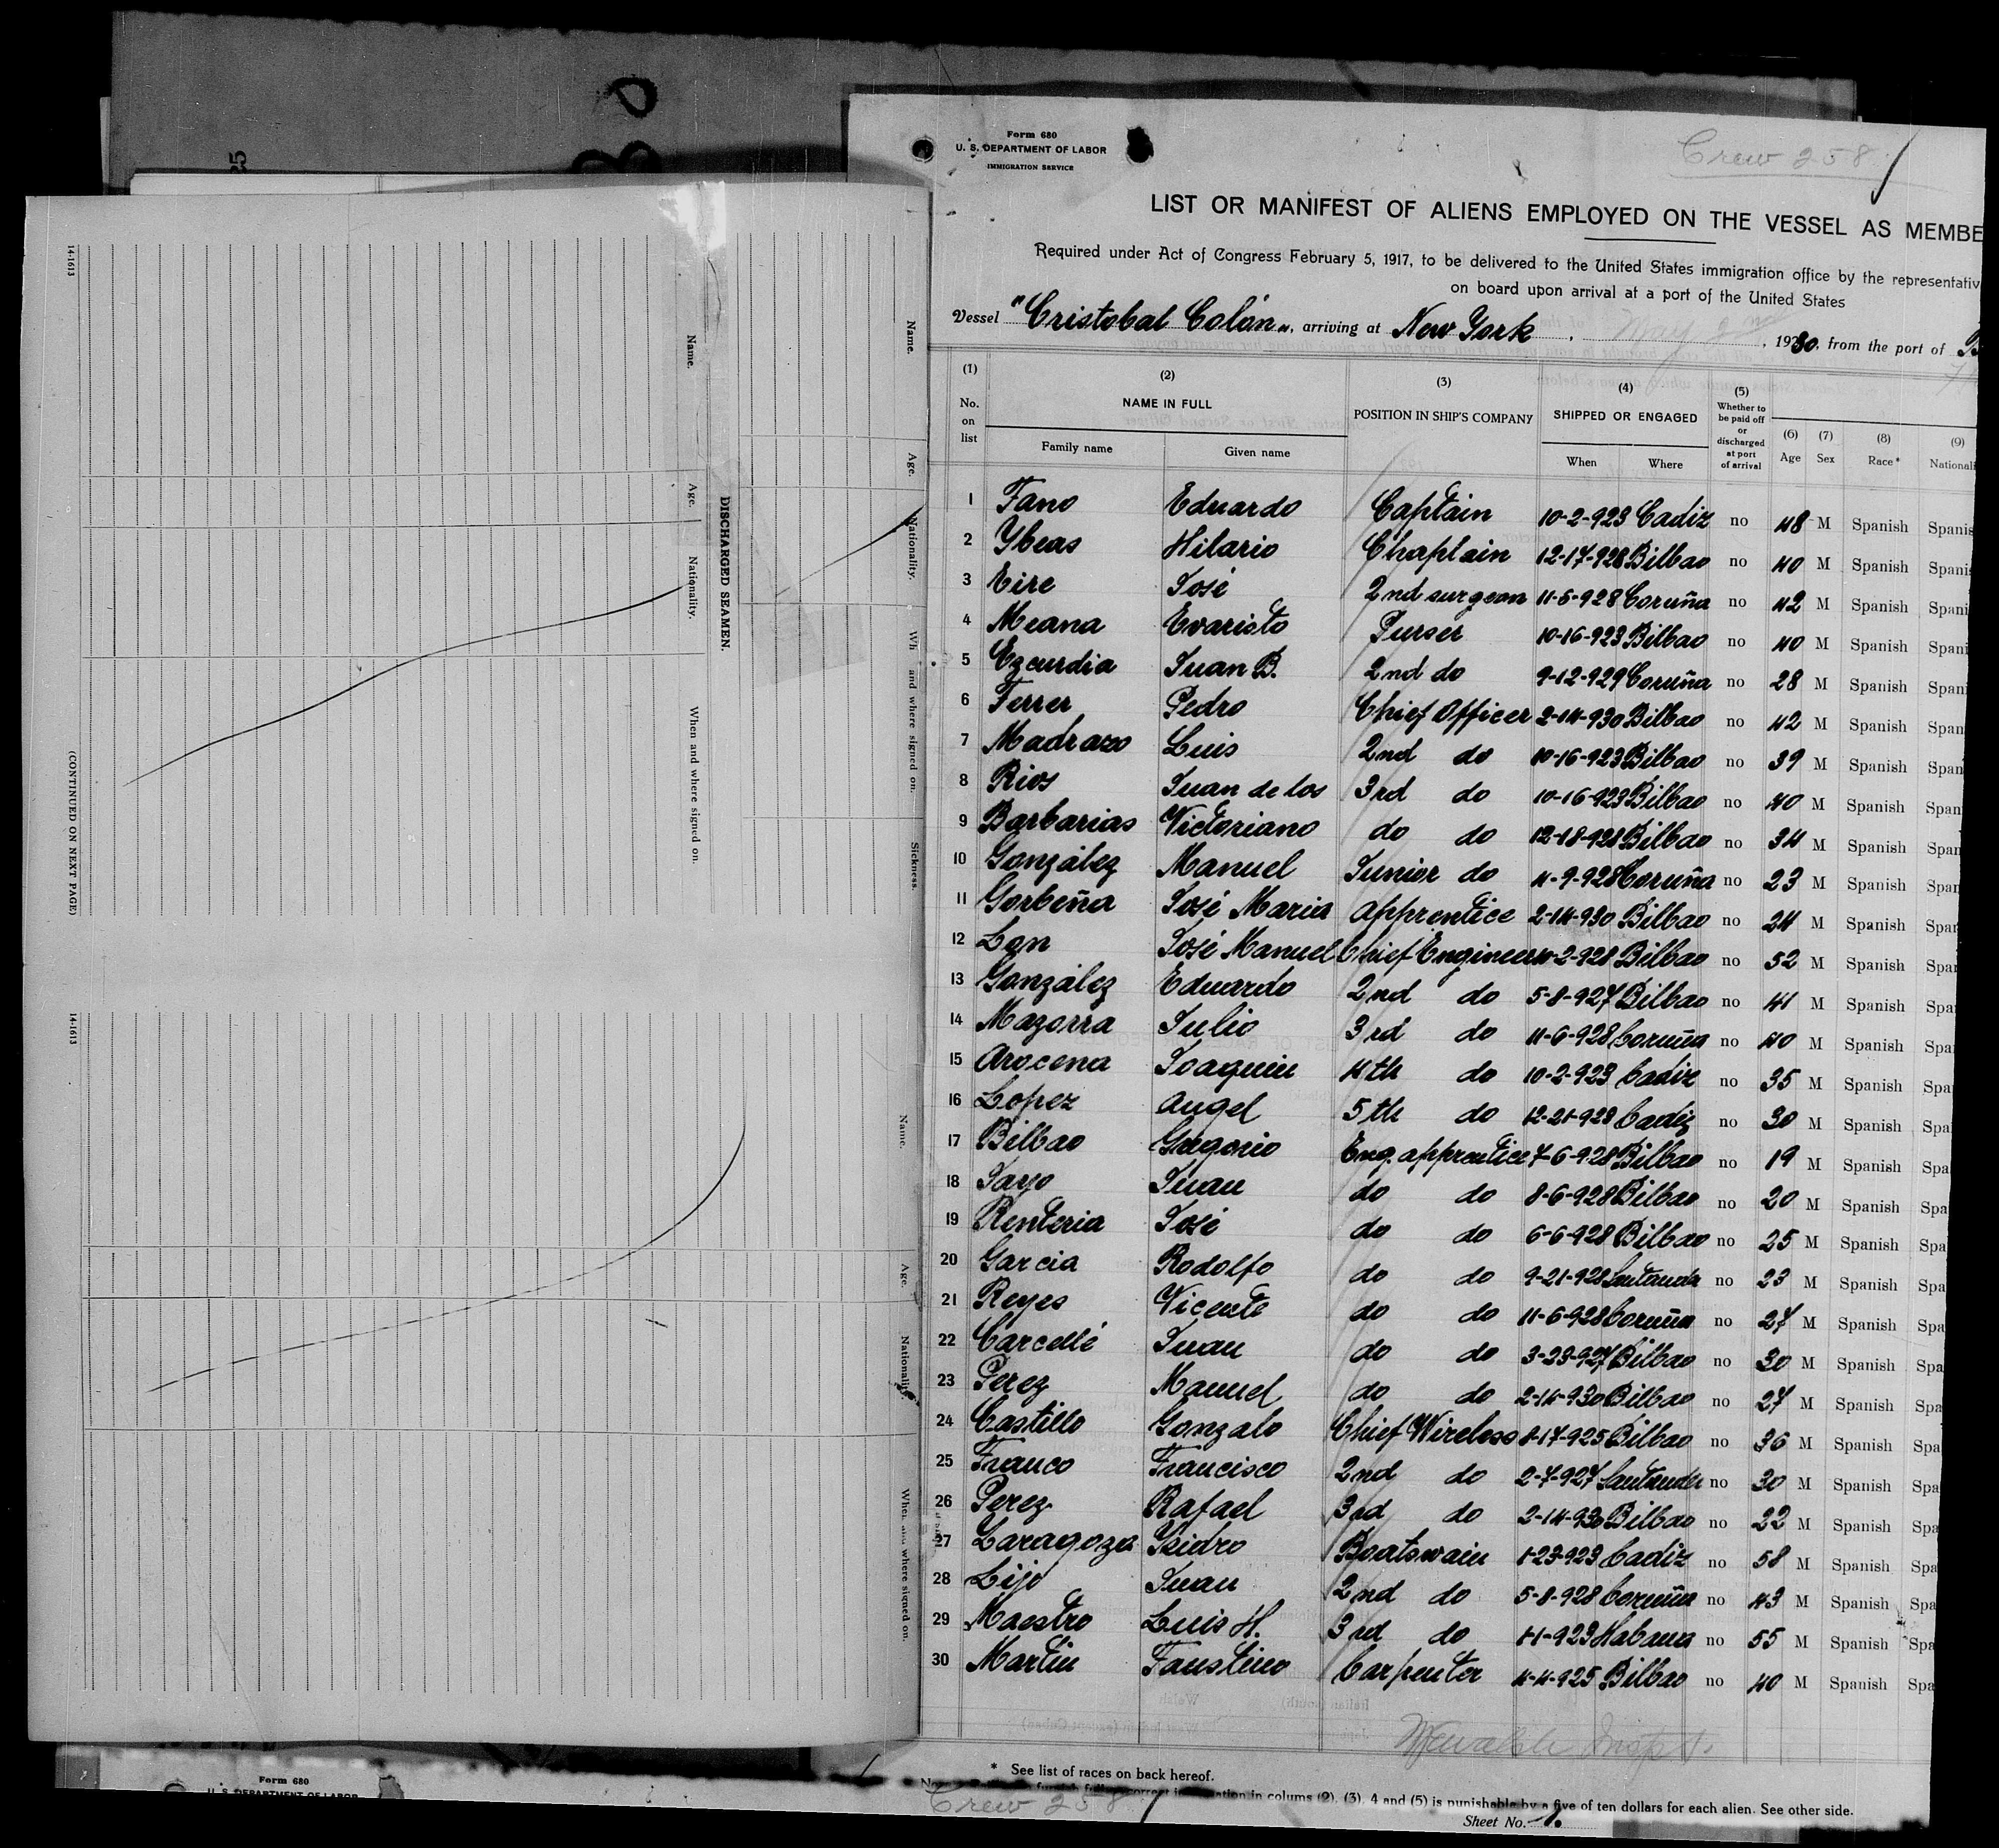 14-1613
Name.
Age.
Nationality.
When and where signed on.
(CONTINUED ON NEXT PAGE)
DISCHARGED SEAMEN.
Name.
Age.
Nationality.
and where signed on.
Sickness.
14-1613
Name.
Age.
Nationality
where signed on.
Form 680
U. S. DEPARTMENT OF LABOR
IMMIGRATION SERVICE
Crew 258
LIST OR MANIFEST OF ALIENS EMPLOYED ON THE VESSEL AS MEMBE
Required under Act of Congress February 5, 1917, to be delivered to the United States immigration office by the representativ
on board upon arrival at a port of the United States
Vessel "Cristobal Colón", arriving at New York, May 2nd, 1930, from the port of B
(1) No. on list (2) NAME IN FULL Family name Given name (3) POSITION IN SHIP'S COMPANY (4) SHIPPED OR ENGAGED When Where (5) Whether to be paid off or discharged at port of arrival (6) Age (7) Sex (8) Race* (9) Nationali
1 Fano Eduardo Captain 10-2-923 Cadiz no 48 M Spanish Spanis
2 Ybeas Hilario Chaplain 12-17-928 Bilbao no 40 M Spanish Spanis
3 Eire José 2nd surgeon 11-5-928 Coruña no 42 M Spanish Spani
4 Meana Evaristo Purser 10-16-923 Bilbao no 40 M Spanish Spani
5 Ezcurdia Juan B. 2nd do 9-12-929 Coruña no 28 M Spanish Spani
6 Ferrer Pedro Chief Officer 2-14-930 Bilbao no 42 M Spanish Span
7 Madrazo Luis 2nd do 10-16-923 Bilbao no 39 M Spanish Span
8 Rios Juan de los 3rd do 10-16-923 Bilbao no 40 M Spanish Span
9 Barbarias Victoriano do do 12-18-928 Bilbao no 34 M Spanish Span
10 González Manuel Junior do 4-9-928 Coruña no 23 M Spanish Span
11 Gorbeña José Maria apprentice 2-14-930 Bilbao no 24 M Spanish Spar
12 José Manuel Chief Engineer Bilbao no 52 M Spanish Spa
13 González Eduardo 2nd do 5-8-927 Bilbao no 41 M Spanish Spa
14 Mazorra Julio 3rd do 11-6-928 Coruña no 40 M Spanish Spa
15 Arocena Joaquin 4th do 10-2-923 Cadiz no 35 M Spanish Spa
16 Lopez Angel 5th do 12-21-928 Cadiz no 30 M Spanish Spa
17 Bilbao Gregorio Eng. apprentice 7-6-928 Bilbao no 19 M Spanish Spa
18 Juan do do 8-6-928 Bilbao no 20 M Spanish Spa
19 Renteria José do do 6-6-928 Bilbao no 25 M Spanish Spa
20 Garcia Rodolfo do do 9-21-928 Santander no 23 M Spanish Spa
21 Reyes Vicente do do 11-6-928 Coruña no 27 M Spanish Spa
22 Carcellé Juan do do 3-23-927 Bilbao no 30 M Spanish Spa
23 Perez Manuel do do 2-14-930 Bilbao no 27 M Spanish Spa
24 Castillo Gonzalo Chief Wireless 8-17-925 Bilbao no 36 M Spanish Spa
25 Franco Francisco 2nd do 2-7-927 Santander no 30 M Spanish Spa
26 Perez Rafael 3rd do 2-14-930 Bilbao no 22 M Spanish Spa
27 Laragoza Ysidro Boatswain 1-23-923 Cadiz no 58 M Spanish Spa
28 Lijo Juan 2nd do 5-8-928 Coruña no 43 M Spanish Spa
29 Maestro Luis H. 3rd do 1-1-923 Habana no 55 M Spanish Spa
30 Martin Faustino Carpenter 4-4-925 Bilbao no 40 M Spanish Spa
* See list of races on back hereof.
in colums (2), (3), 4 and (5) is punishable by a five of ten dollars for each alien. See other side.
Sheet No. 1.
Form 680
U. S. DEPARTMENT OF LABOR
Crew 258